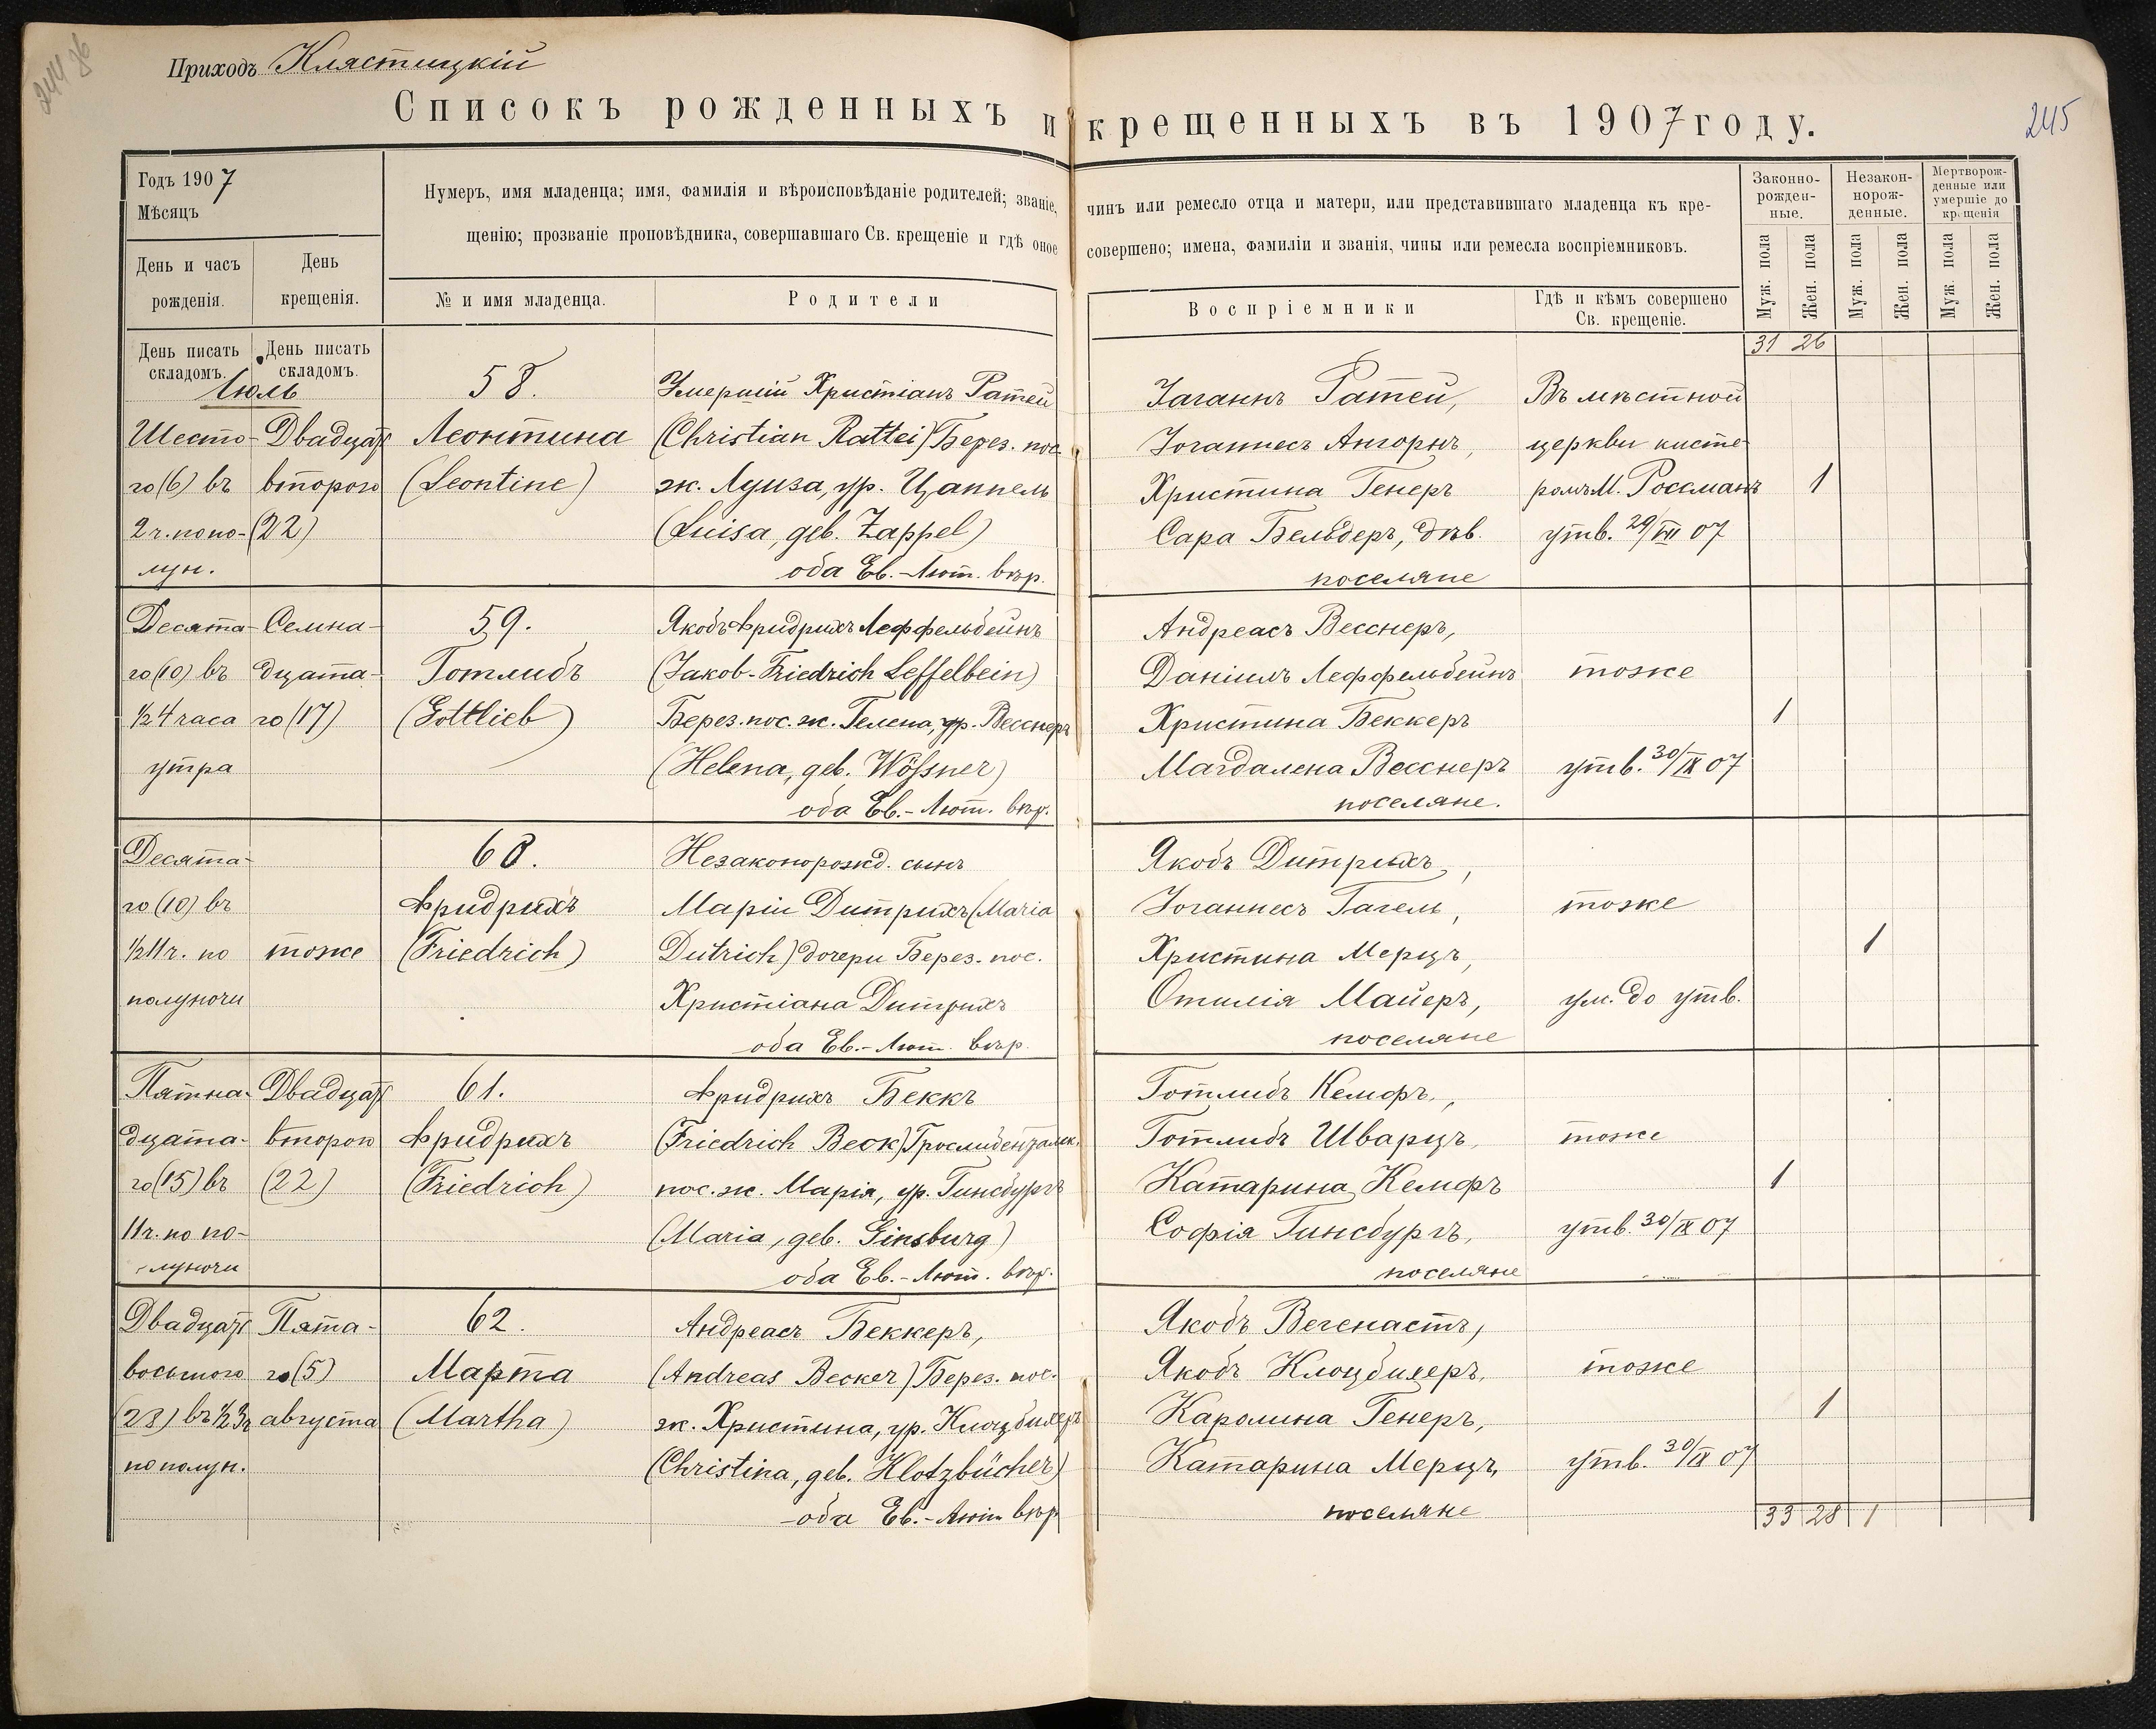 Приходъ Клястицкій
Списокъ рожденныхъ и крещенныхъ въ 1907 году.
245
Годъ 1907
Мѣсяцъ
День и часъ рожденія.
День крещенія.
Нумеръ, имя младенца; имя, фамилія и вѣроисповѣданіе родителей; званіе, чинъ или ремесло отца и матери, или представившаго младенца къ кре-
щенію; прозваніе проповѣдника, совершавшаго Св. крещеніе и гдѣ оное совершено; имена, фамиліи и званія, чины или ремесла воспріемниковъ.
№ и имя младенца.
Родители
Воспріемники
Гдѣ и кѣмъ совершено
Св. крещеніе.
Законно-
рожден-
ные.
Незакон-
норож-
денные.
Мертворож-
денные или
умершіе до
крещенія
Муж. пола
Жен. пола
Муж. пола
Жен. пола
Муж. пола
Жен. пола
День писать
складомъ.
День писать
складомъ.
31 26
Іюль
Шесто-
го (6) въ
2 ч. попо-
лун.
Двадцать
второго
(22)
58.
Леонтина
(Leontine)
Умершій Христіанъ Раттей
(Christian Rattei) Берез. пос.
ж. Луиза, ур. Цаппель
(Luisa, geb. Zappel)
оба Ев.-Лют. вѣр.
Іоганнъ Раттей,
Іоганнесъ Ангорнъ,
Христина Генеръ
Сара Бельдеръ, дѣв.
поселяне
Въ мѣстной
церкви кисте-
ромъ М. Россманъ
утв. 29/VII 07
1
Десята-
го (10) въ
½ 4 часа
утра
Семна-
дцата-
го (17)
59.
Готлибъ
(Gottlieb)
Якобъ Фридрихъ Леффельбейнъ
(Jakob-Friedrich Leffelbein)
Берез. пос. ж. Гелена, ур. Весснеръ
(Helena, geb. Wößner)
оба Ев.-Лют. вѣр.
Андреасъ Весснеръ,
Даніилъ Леффельбейнъ
Христина Беккеръ
Магдалена Весснеръ
поселяне.
тоже
утв. 30/IX 07
1
Десята-
го (10) въ
½ 11 ч. по
полуночи
тоже
60.
Фридрихъ
(Friedrich)
Незаконорожд. сынъ
Маріи Дитрихъ (Maria
Dietrich) дочери Берез. пос.
Христіана Дитрихъ
оба Ев.-Лют. вѣр.
Якобъ Дитрихъ,
Іоганнесъ Гагель,
Христина Мерцъ,
Отилія Майеръ,
поселяне
тоже
ум. до утв.
1
Пятна-
дцата-
го (15) въ
11 ч. по по-
луночи
Двадцать
второго
(22)
61.
Фридрихъ
(Friedrich)
Фридрихъ Беккъ
(Friedrich Beck)
пос. ж. Марія, ур. Гинсбургъ
(Maria, geb. Ginsburg)
оба Ев.-Лют. вѣр.
Готлибъ Кемфъ,
Готлибъ Шварцъ,
Катарина Кемфъ
Софія Гинсбургъ,
поселяне
тоже
утв. 30/IX 07
1
Двадцать
восьмого
(28) въ ½ 3 ч
по полун.
Пята-
го (5)
августа
62.
Марта
(Martha)
Андреасъ Беккеръ,
(Andreas Becker) Берез. пос.
ж. Христина, ур. Клоцбихеръ
(Christina, geb. Klotzbücher)
оба Ев.-Лют. вѣр
Якобъ Вегенастъ,
Якобъ Клоцбихеръ,
Каролина Генеръ,
Катарина Мерцъ,
поселяне
тоже
утв. 30/IX 07
1
33 28 1